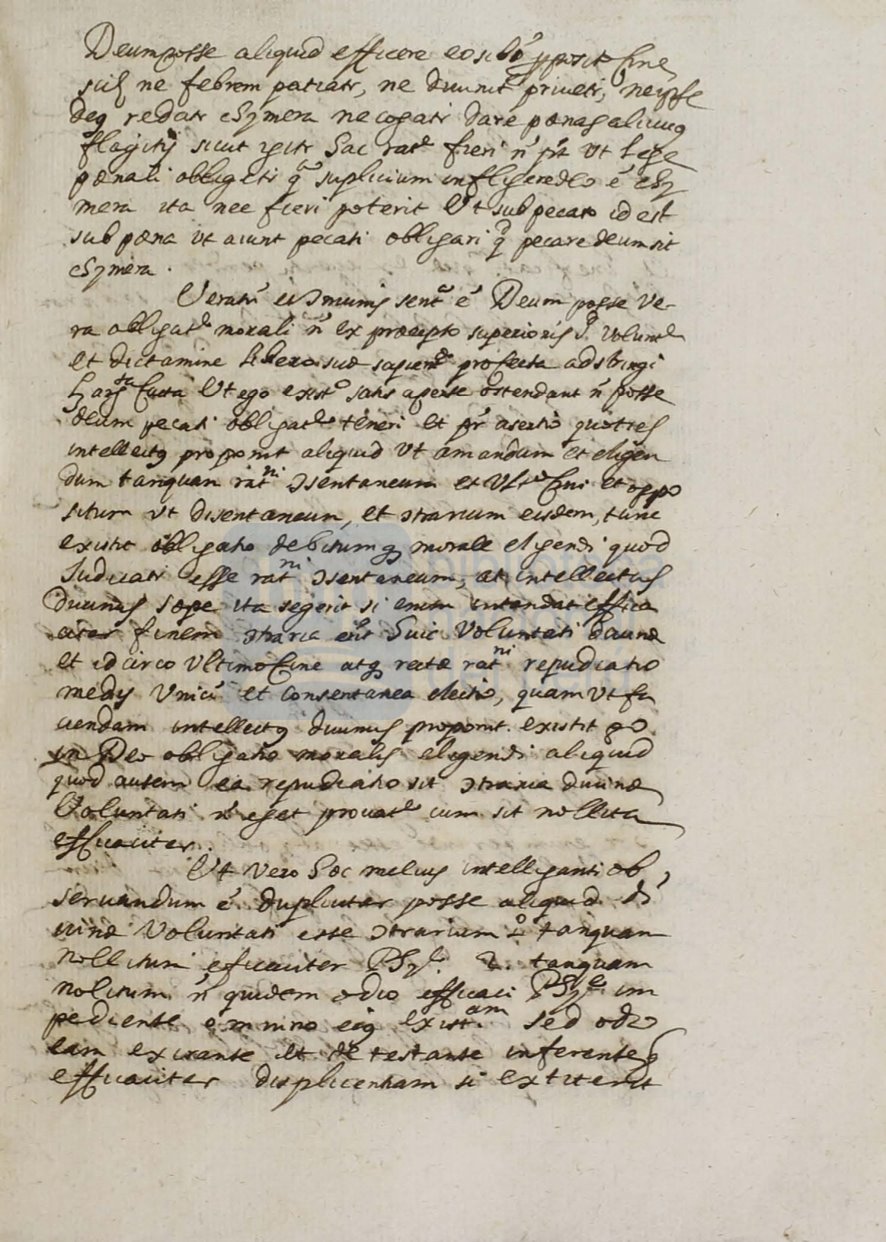 Deum posse aliquid efficere eo sibi propositi fine,
scil ne febrem patiatr, ne divinite privetr, ne ipse
deq redatr chymera ne cogatr dare pœnas alicuiq
flagitij sicut igitr hac rate fieri n pt ut lege
pœnali obligetr qa suplicium infligere deo e chy
mera ita nec fieri poterit Ut sub pecato id est
sub pœna ut aiunt pecati obligari q pecare deum sit
chymera.
Verati comunis sent e Deum posse ve-
ra obligate morali n ex præcepto superioris voluntte
et dictamine libero suæ sapiene profecta adstringi
facta Ut ego exist satis aperte ostendant n posse
deum pecati obligate teneri et pr asertio quoties
intellectq proponit aliquid Ut amandum et eligen
dum tanquam ratni ↄsentaneum et Ulto fini et oppo
situm ut disentaneum, et ↄtrarium eisdem, tunc
existit obligatio debitumq morale eligendi quod
Judicatr esse ratni ↄsentaneum, at intellectus
Divinus sæpe ita segerit si enim intendat effica
citer finem ↄtraria erit huic Voluntati divinæ
et idcirco Ultimo fine atq rectæ ratni repudiatio
medij Unici et consentanea electio, quam Ut fa
ciendam intellectq divinus proponit. existit go
in Deo obligatio moralis eligendi aliquid
quod autem ea repudiatio sit ↄtraria divinæ
Voluntati n eget provate cum sit nollita
efficaciter.
Ut vero hoc melius intelligantr ob
servandum e dupliciter posse aliquid di
vinæ Voluntati esse ↄtrarium 1o tanquam
nollitum eficaciter Phye. 2. tanquam
nolitum n quidem odio efficaci Phye im
pediente omnino eiq existam sed odio
eam exirante et detestante inferenteq
efficaciter displicentiam si extiterit